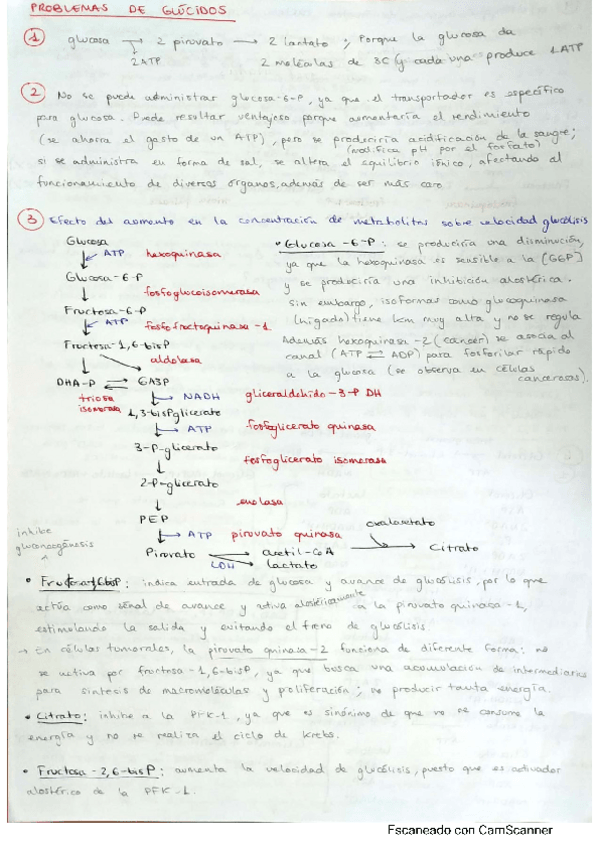 PROBLEMAS DE GLÚCIDOS
1 glucosa → 2 piruvato → 2 lactato ; Porque la glucosa da
2 ATP 2 moléculas de 3C y cada una produce 1 ATP
2 No se puede administrar glucosa-6-P, ya que el transportador es específico
para glucosa. Puede resultar ventajoso porque aumentaría el rendimiento
(se ahorra el gasto de un ATP), pero se produciría acidificación de la sangre;
(modifica pH por el fosfato)
si se administra en forma de sal, se altera el equilibrio iónico, afectando al
funcionamiento de diversos órganos, además de ser más caro.
3 Efecto del aumento en la concentración de metabolitos sobre velocidad glucólisis
Glucosa
ATP hexoquinasa
Glucosa-6-P
fosfoglucoisomerasa
Fructosa-6-P
ATP fosfofructoquinasa-1
Fructosa-1,6-bisP
aldolasa
DHA-P ⇌ GA3P
triosa isomerasa
NADH gliceraldehído-3-P DH
1,3-bisPglicerato
ATP fosfoglicerato quinasa
3-P-glicerato
fosfoglicerato isomerasa
2-P-glicerato
enolasa
PEP
ATP piruvato quinasa
oxalacetato
Piruvato acetil-CoA → citrato
LDH lactato
inhibe
gluconeogénesis
• Glucosa-6-P: se produciría una disminución,
ya que la hexoquinasa es sensible a la [G6P]
y se produciría una inhibición alostérica.
Sin embargo, isoformas como glucoquinasa
(hígado) tiene km muy alta y no se regula
Además hexoquinasa-2 (cáncer) se asocia al
canal (ATP ⇌ ADP) para fosforilar rápido
a la glucosa (se observa en células
cancerosas).
• Fructosa-1,6-bisP: indica entrada de glucosa y avance de glucólisis, por lo que
actúa como señal de avance y activa alostéricamente a la piruvato quinasa-1,
estimulando la salida y evitando el freno de glucólisis.
→ En células tumorales, la piruvato quinasa-2 funciona de diferente forma: no
se activa por fructosa-1,6-bisP, ya que busca una acumulación de intermediarios
para síntesis de macromoléculas y proliferación; no producir tanta energía.
• Citrato: inhibe a la PFK-1, ya que es sinónimo de que no se consume la
energía y no se realiza el ciclo de Krebs.
• Fructosa-2,6-bisP: aumenta la velocidad de glucólisis, puesto que es activador
alostérico de la PFK-1.
Escaneado con CamScanner